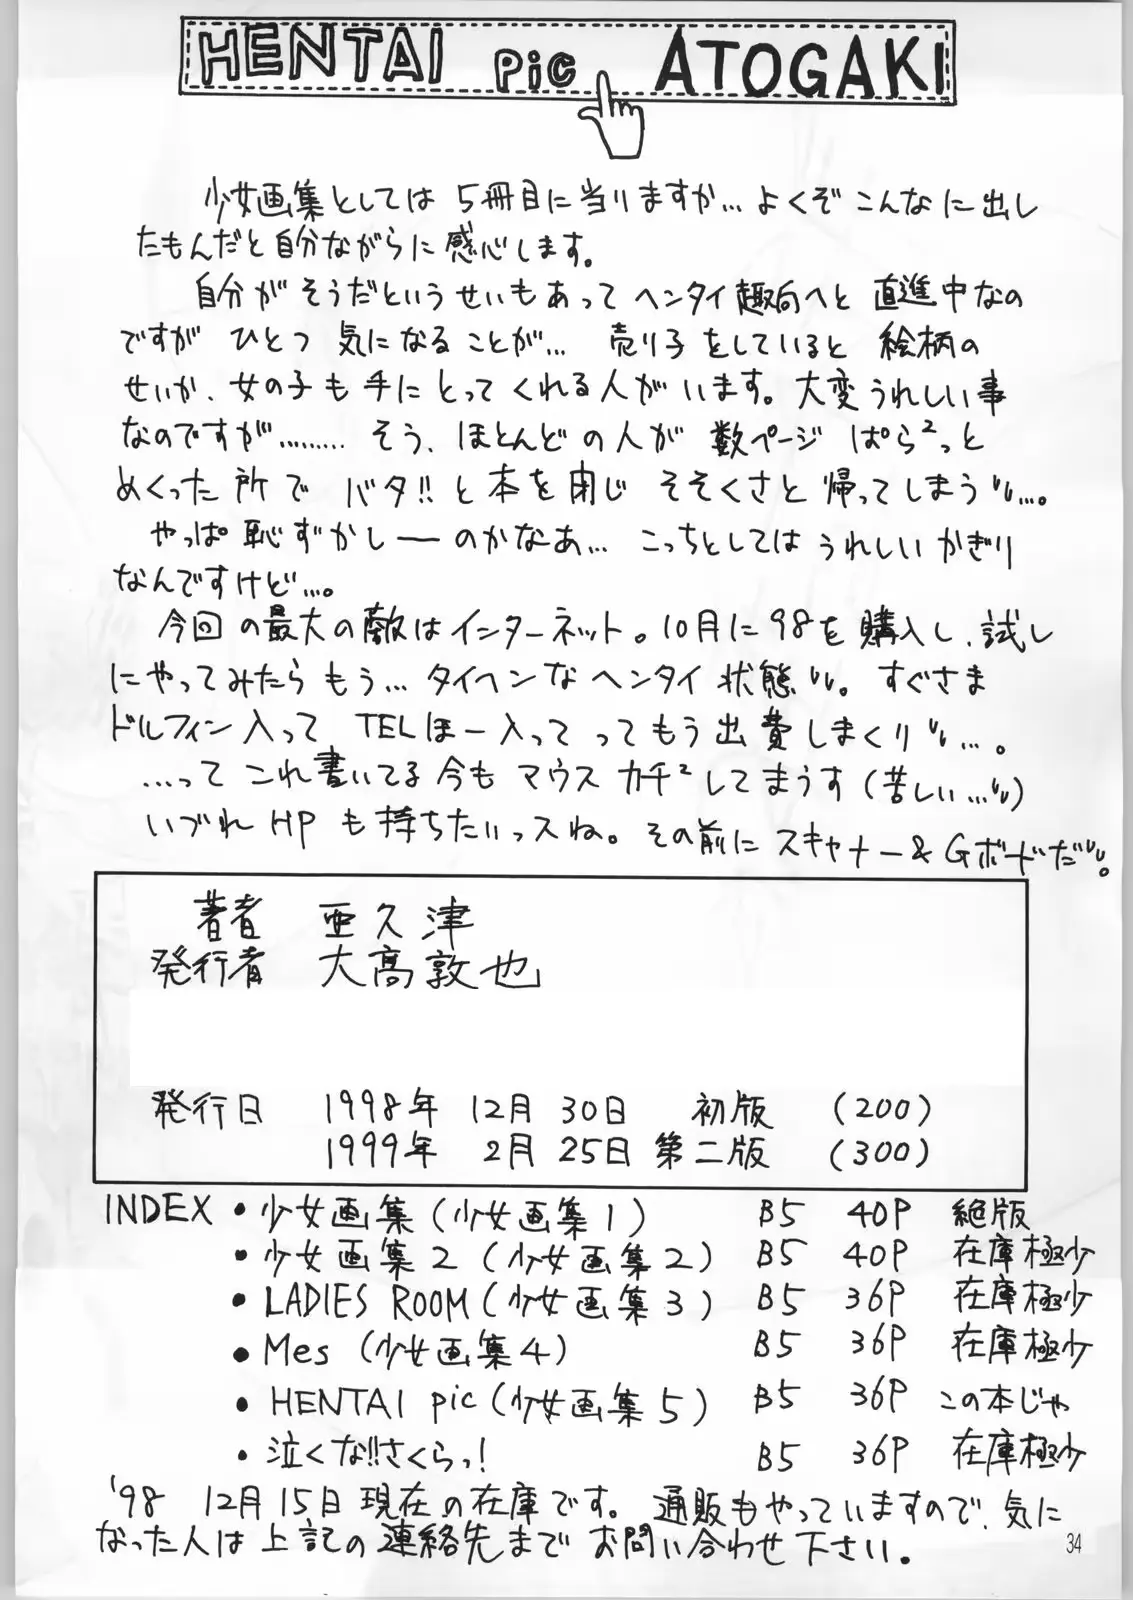 HENTAI pic ATOGAKI
少女画集としては5冊目に当りますか…よくぞこんなに出し
たもんだと自分ながらに感心します。
自分がそうだというせいもあってヘンタイ趣向へと直進中なの
ですがひとつ気になることが…売り子をしていると絵柄の
せいか、女の子も手にとってくれる人がいます。大変うれしい事
なのですが………そう、ほとんどの人が数ページぱら²っと
めくった所でバタ!!と本を閉じそそくさと帰ってしまう…。
やっぱ恥ずかしーのかなあ…こっちとしてはうれしいかぎり
なんですけど…。
今回の最大の敵はインターネット。10月に98を購入し、試し
にやってみたらもう…タイヘンなヘンタイ状態。すぐさま
ドルフィン入ってTELほー入ってってもう出費しまくり…。
…ってこれ書いてる今もマウスカチ²してまうす(苦しい…)
いづれHPも持ちたいっスね。その前にスキャナー&Gボードだ。
著者 亜久津
発行者 大高敦也
発行日 1998年 12月 30日 初版 (200)
1999年 2月 25日 第二版 (300)
INDEX・少女画集(少女画集1) B5 40P 絶版
・少女画集2(少女画集2) B5 40P 在庫極少
・LADIES ROOM(少女画集3) B5 36P 在庫極少
・Mes(少女画集4) B5 36P 在庫極少
・HENTAI pic(少女画集5) B5 36P この本じゃ
・泣くな!!さくらっ! B5 36P 在庫極少
'98 12月15日現在の在庫です。通販もやっていますので、気に
なった人は上記の連絡先までお問い合わせ下さい。
34